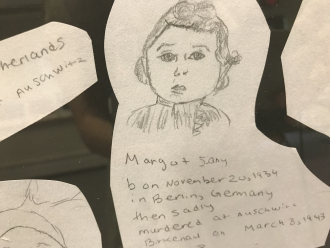 therlands
Auschwitz
Margot
born November 20, 1934
in Berlin, Germany
then sadly
murdered at Auschwitz
Birkenau on March 3, 1943